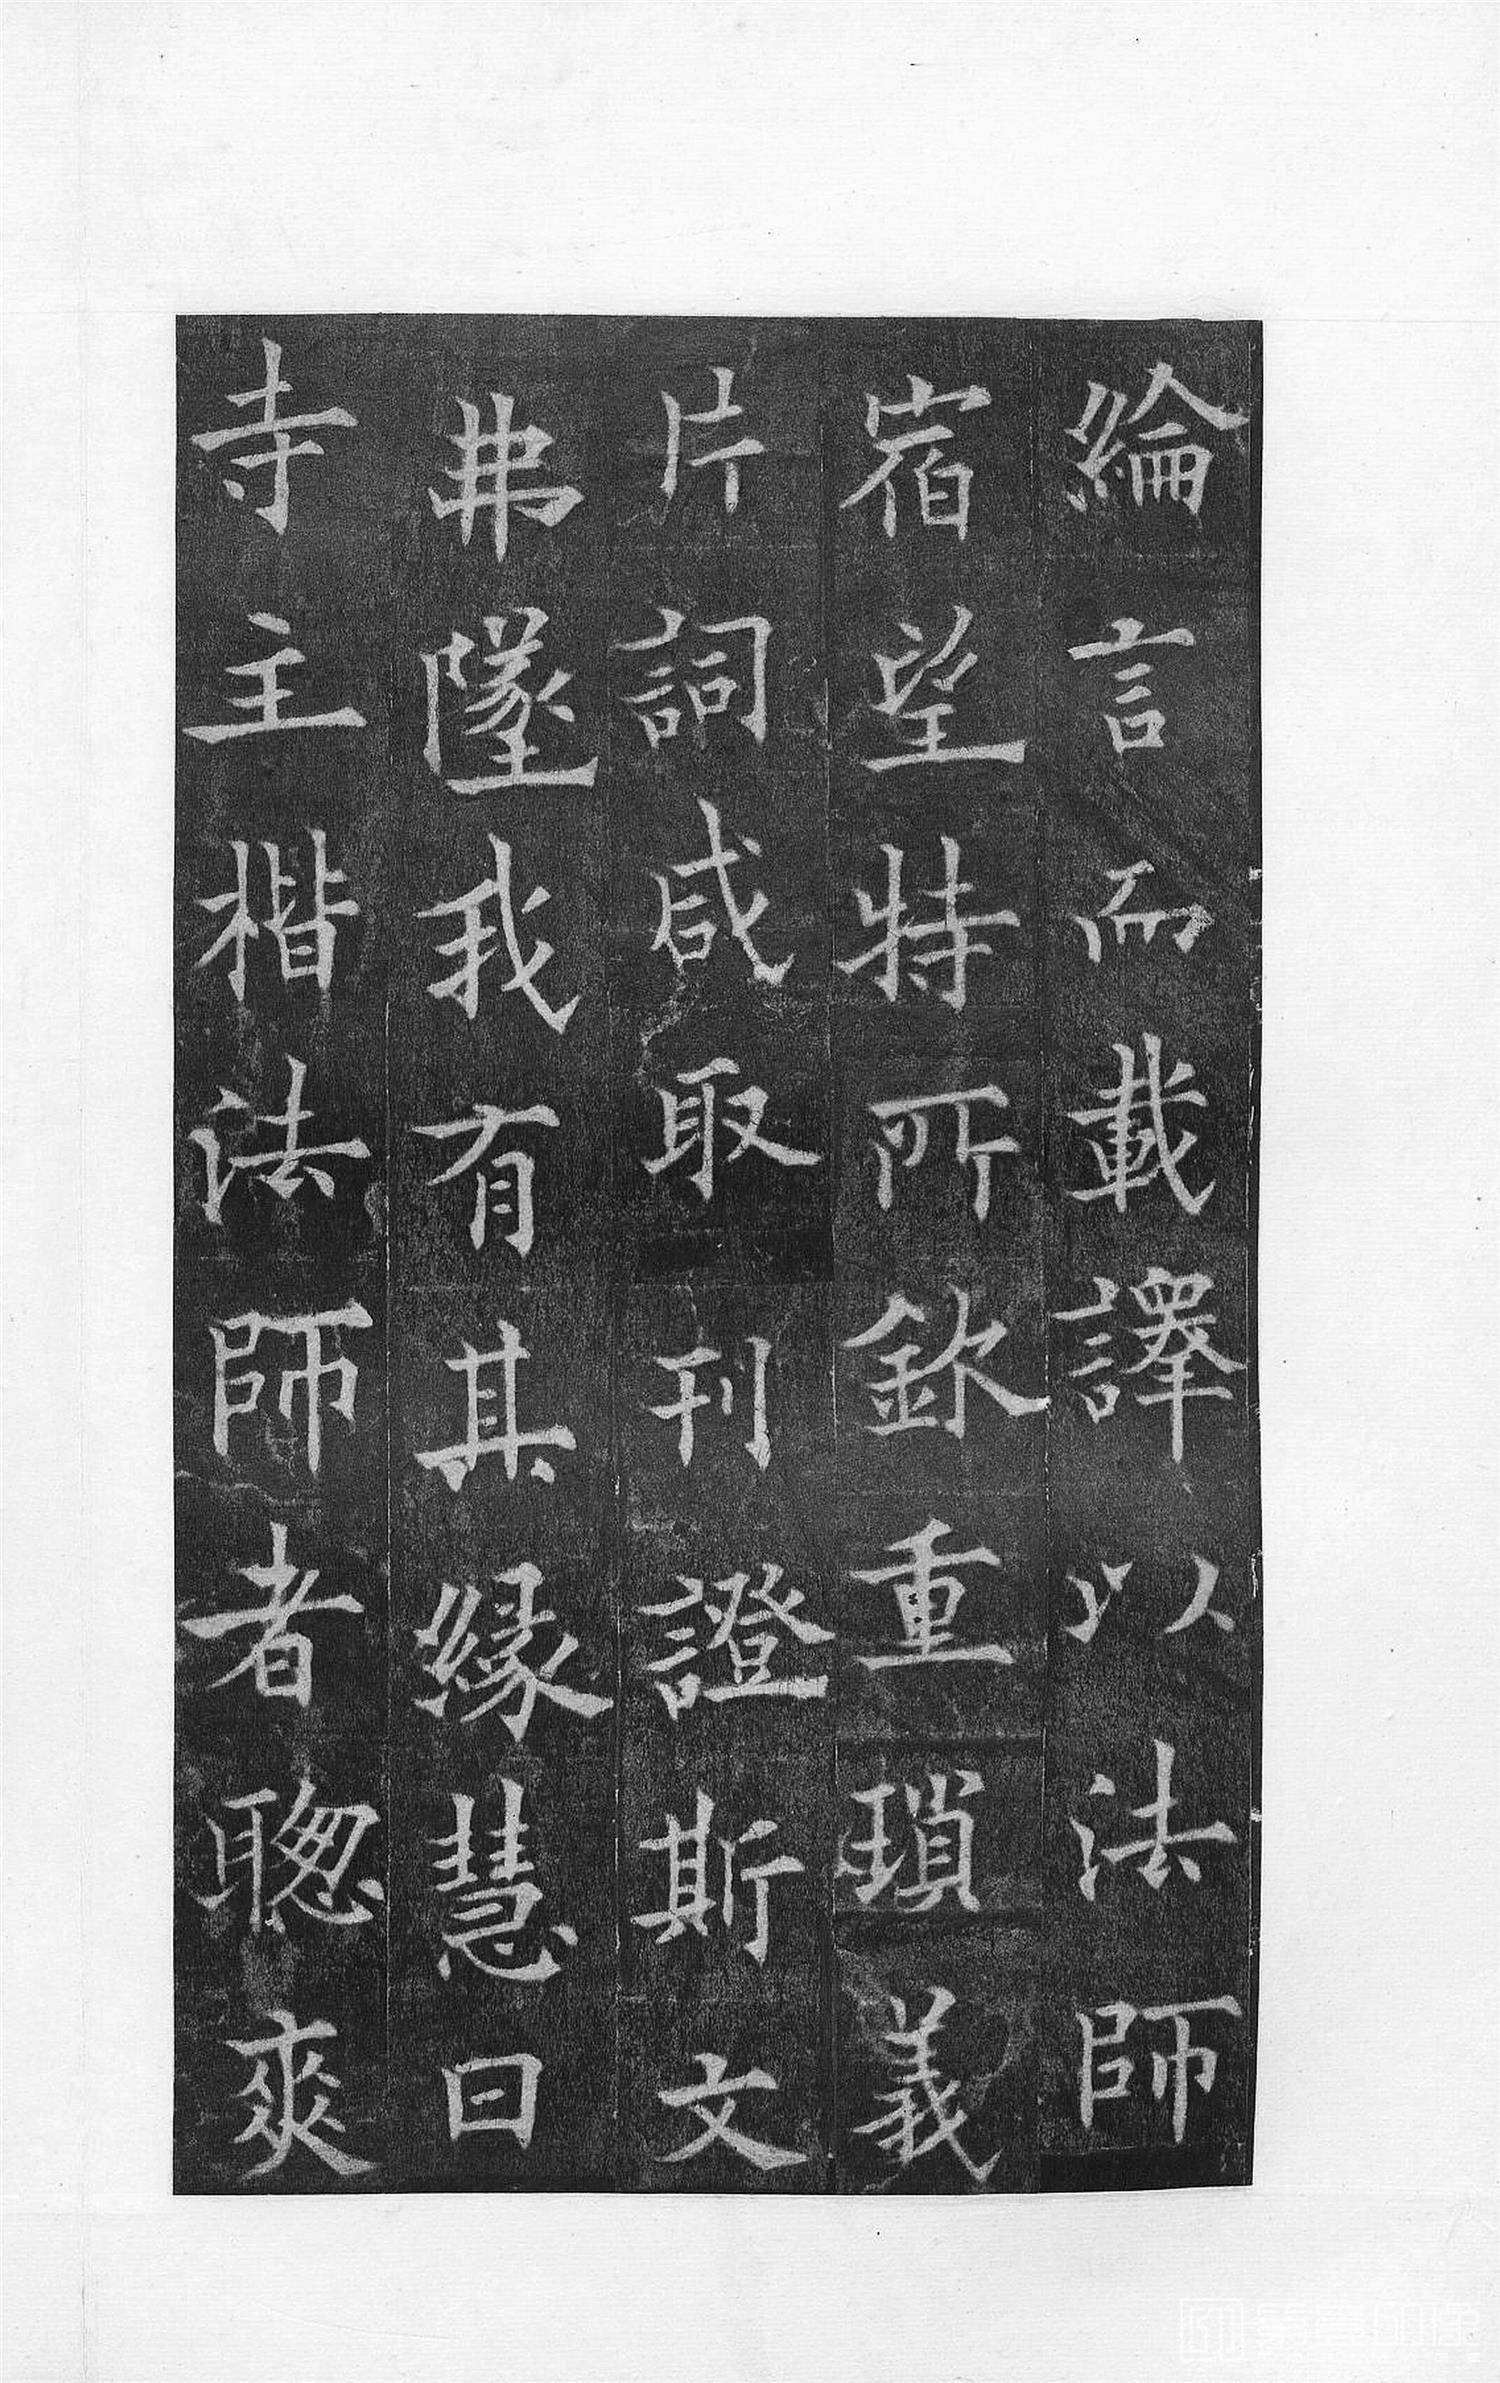 綸言而載譯以法師
宿望特所欽重瑣義
片詞咸取刊證斯文
弗墜我有其緣慧日
寺主楷法師者聰爽